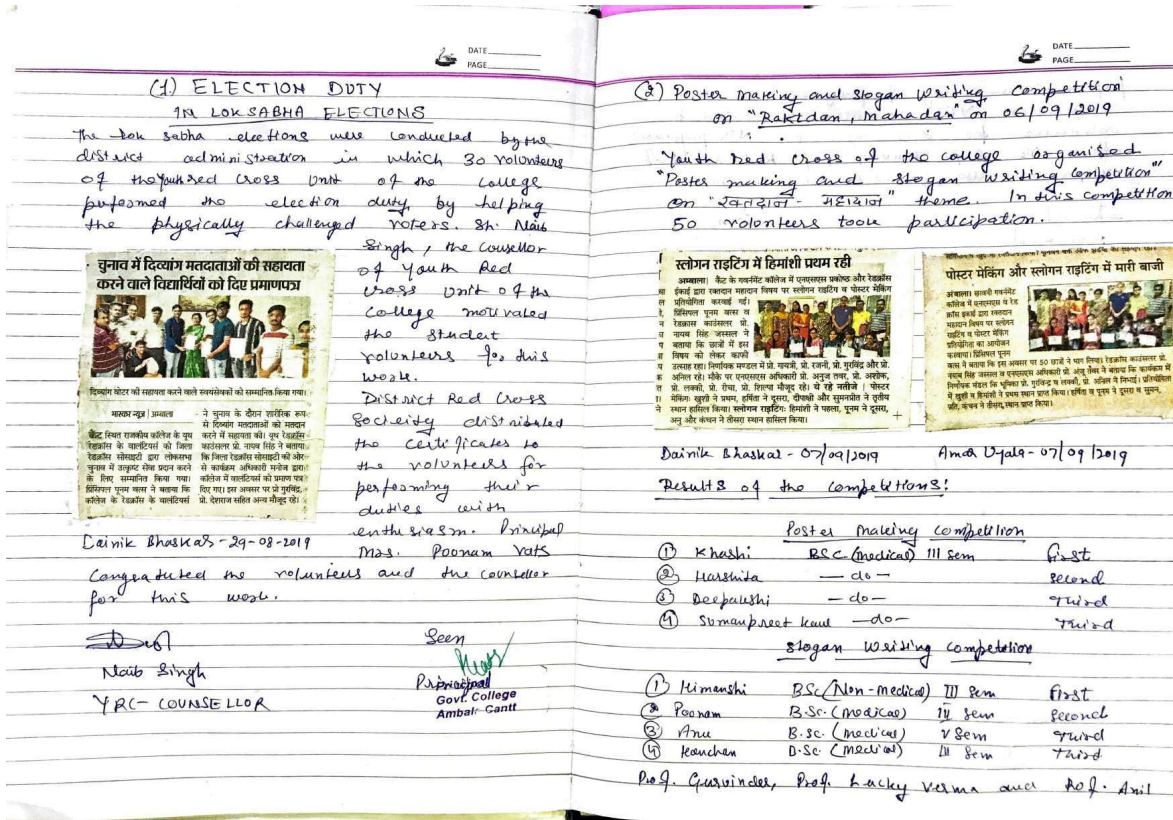 DATE
PAGE
(1) ELECTION DUTY
IN LOK SABHA ELECTIONS
The Lok sabha elections were conducted by the
district administration in which 30 volunteers
of the Youth red cross Unit of the college
performed the election duty, by helping
the physically challenged voters. Sh. Naib
Singh, the Counsellor
of Youth Red
Cross Unit of the
College motivated
the student
volunteers for this
work.
District Red Cross
Society distributed
the certificates to
the volunteers for
performing their
duties with
enthusiasm. Principal
Mrs. Poonam Vats
Congratuted the volunteers and the counsellor
for this work.
चुनाव में दिव्यांग मतदाताओं की सहायता
करने वाले विद्यार्थियों को दिए प्रमाणपत्र
दिव्यांग वोटर की सहायता करने वाले स्वयंसेवकों को सम्मानित किया गया।
भास्कर न्यूज | अम्बाला
कैंट स्थित राजकीय कॉलेज के यूथ
रेडक्रॉस के वालंटियर्स को जिला
रेडक्रॉस सोसाइटी द्वारा लोकसभा
चुनाव में उत्कृष्ट सेवा प्रदान करने
के लिए सम्मानित किया गया।
प्रिंसिपल पूनम वत्स ने बताया कि
कॉलेज के रेडक्रॉस के वालंटियर्स
ने चुनाव के दौरान शारीरिक रूप
से दिव्यांग मतदाताओं को मतदान
करने में सहायता की। यूथ रेडक्रॉस
काउंसलर प्रो. नायब सिंह ने बताया
कि जिला रेडक्रॉस सोसाइटी की ओर
से कार्यक्रम अधिकारी मनोज द्वारा
कॉलेज में वालंटियर्स को प्रमाण पत्र
दिए गए। इस अवसर पर प्रो गुरविंद्र,
प्रो. देशराज सहित अन्य मौजूद रहे।
Dainik Bhaskar - 29-08-2019
Naib Singh
YRC - COUNSELLOR
Seen
Principal
Govt. College
Ambala Cantt
DATE
PAGE
(2) Poster making and slogan writing competition
on "Raktdan, Mahadan" on 06/09/2019
Youth red cross of the college organised
"Poster making and slogan writing competition"
on "रक्तदान - महादान" theme. In this competition
50 volunteers took participation.
स्लोगन राइटिंग में हिमांशी प्रथम रही
अम्बाला। कैंट के गवर्नमेंट कॉलेज में एनएसएस प्रकोष्ठ और रेडक्रॉस
ईकाई द्वारा रक्तदान महादान विषय पर स्लोगन राइटिंग व पोस्टर मेकिंग
प्रतियोगिता करवाई गई।
प्रिंसिपल पूनम वत्स व
रेडक्रॉस काउंसलर प्रो.
नायब सिंह जस्सल ने
बताया कि छात्रों में इस
विषय को लेकर काफी
उत्साह रहा। निर्णायक मण्डल में प्रो. गायत्री, प्रो. रजनी, प्रो. गुरविंद्र और प्रो.
अनिल रहे। मौके पर एनएसएस अधिकारी प्रो. अनुज तवर, प्रो. अशोक,
प्रो. लक्की, प्रो. रीचा, प्रो. शिल्पा मौजूद रहे। ये रहे नतीजे | पोस्टर
मेकिंग: खुशी ने प्रथम, हर्षिता ने दूसरा, दीपाक्षी और सुमनप्रीत ने तृतीय
स्थान हासिल किया। स्लोगन राइटिंग: हिमांशी ने पहला, पूनम ने दूसरा,
अनु और कंचन ने तीसरा स्थान हासिल किया।
Dainik Bhaskar - 07/09/2019
पोस्टर मेकिंग और स्लोगन राइटिंग में मारी बाजी
अंबाला। छावनी गवर्नमेंट
कॉलेज में एनएसएस व रेड
क्रॉस इकाई द्वारा रक्तदान
महादान विषय पर स्लोगन
राइटिंग व पोस्टर मेकिंग
प्रतियोगिता का आयोजन
करवाया। प्रिंसिपल पूनम
वत्स ने बताया कि इस अवसर पर 50 छात्रों ने भाग लिया। रेडक्रॉस काउंसलर प्रो.
नायब सिंह जस्सल व एनएसएस अधिकारी प्रो. अनु तेंवर ने बताया कि कार्यक्रम में
निर्णायक मंडल कि भूमिका प्रो. गुरविन्द्र व लक्की, प्रो. अनिल ने निभाई। प्रतियोगिता
में खुशी व हिमांशी ने प्रथम स्थान प्राप्त किया। हर्षिता व पूनम ने दूसरा व सुमन,
प्रति, कंचन ने तीसरा, स्थान प्राप्त किया।
Amar Ujala - 07/09/2019
Results of the competitions:
Poster Making Competition
(1) Khashi BSC (medical) III Sem First
(2) Harshita — do — Second
(3) Deepakshi — do — Third
(4) Sumanpreet Kaur — do — Third
Slogan writing competetion
(1) Himanshi BSc (Non-medical) III Sem First
(2) Poonam B.Sc. (Medical) Sem Second
(3) Anu B.Sc. (Medical) V Sem Third
(4) Kanchan B.Sc. (Medical) III Sem Third
Prof. Gurvinder, Prof. Lucky Verma and Prof. Anil